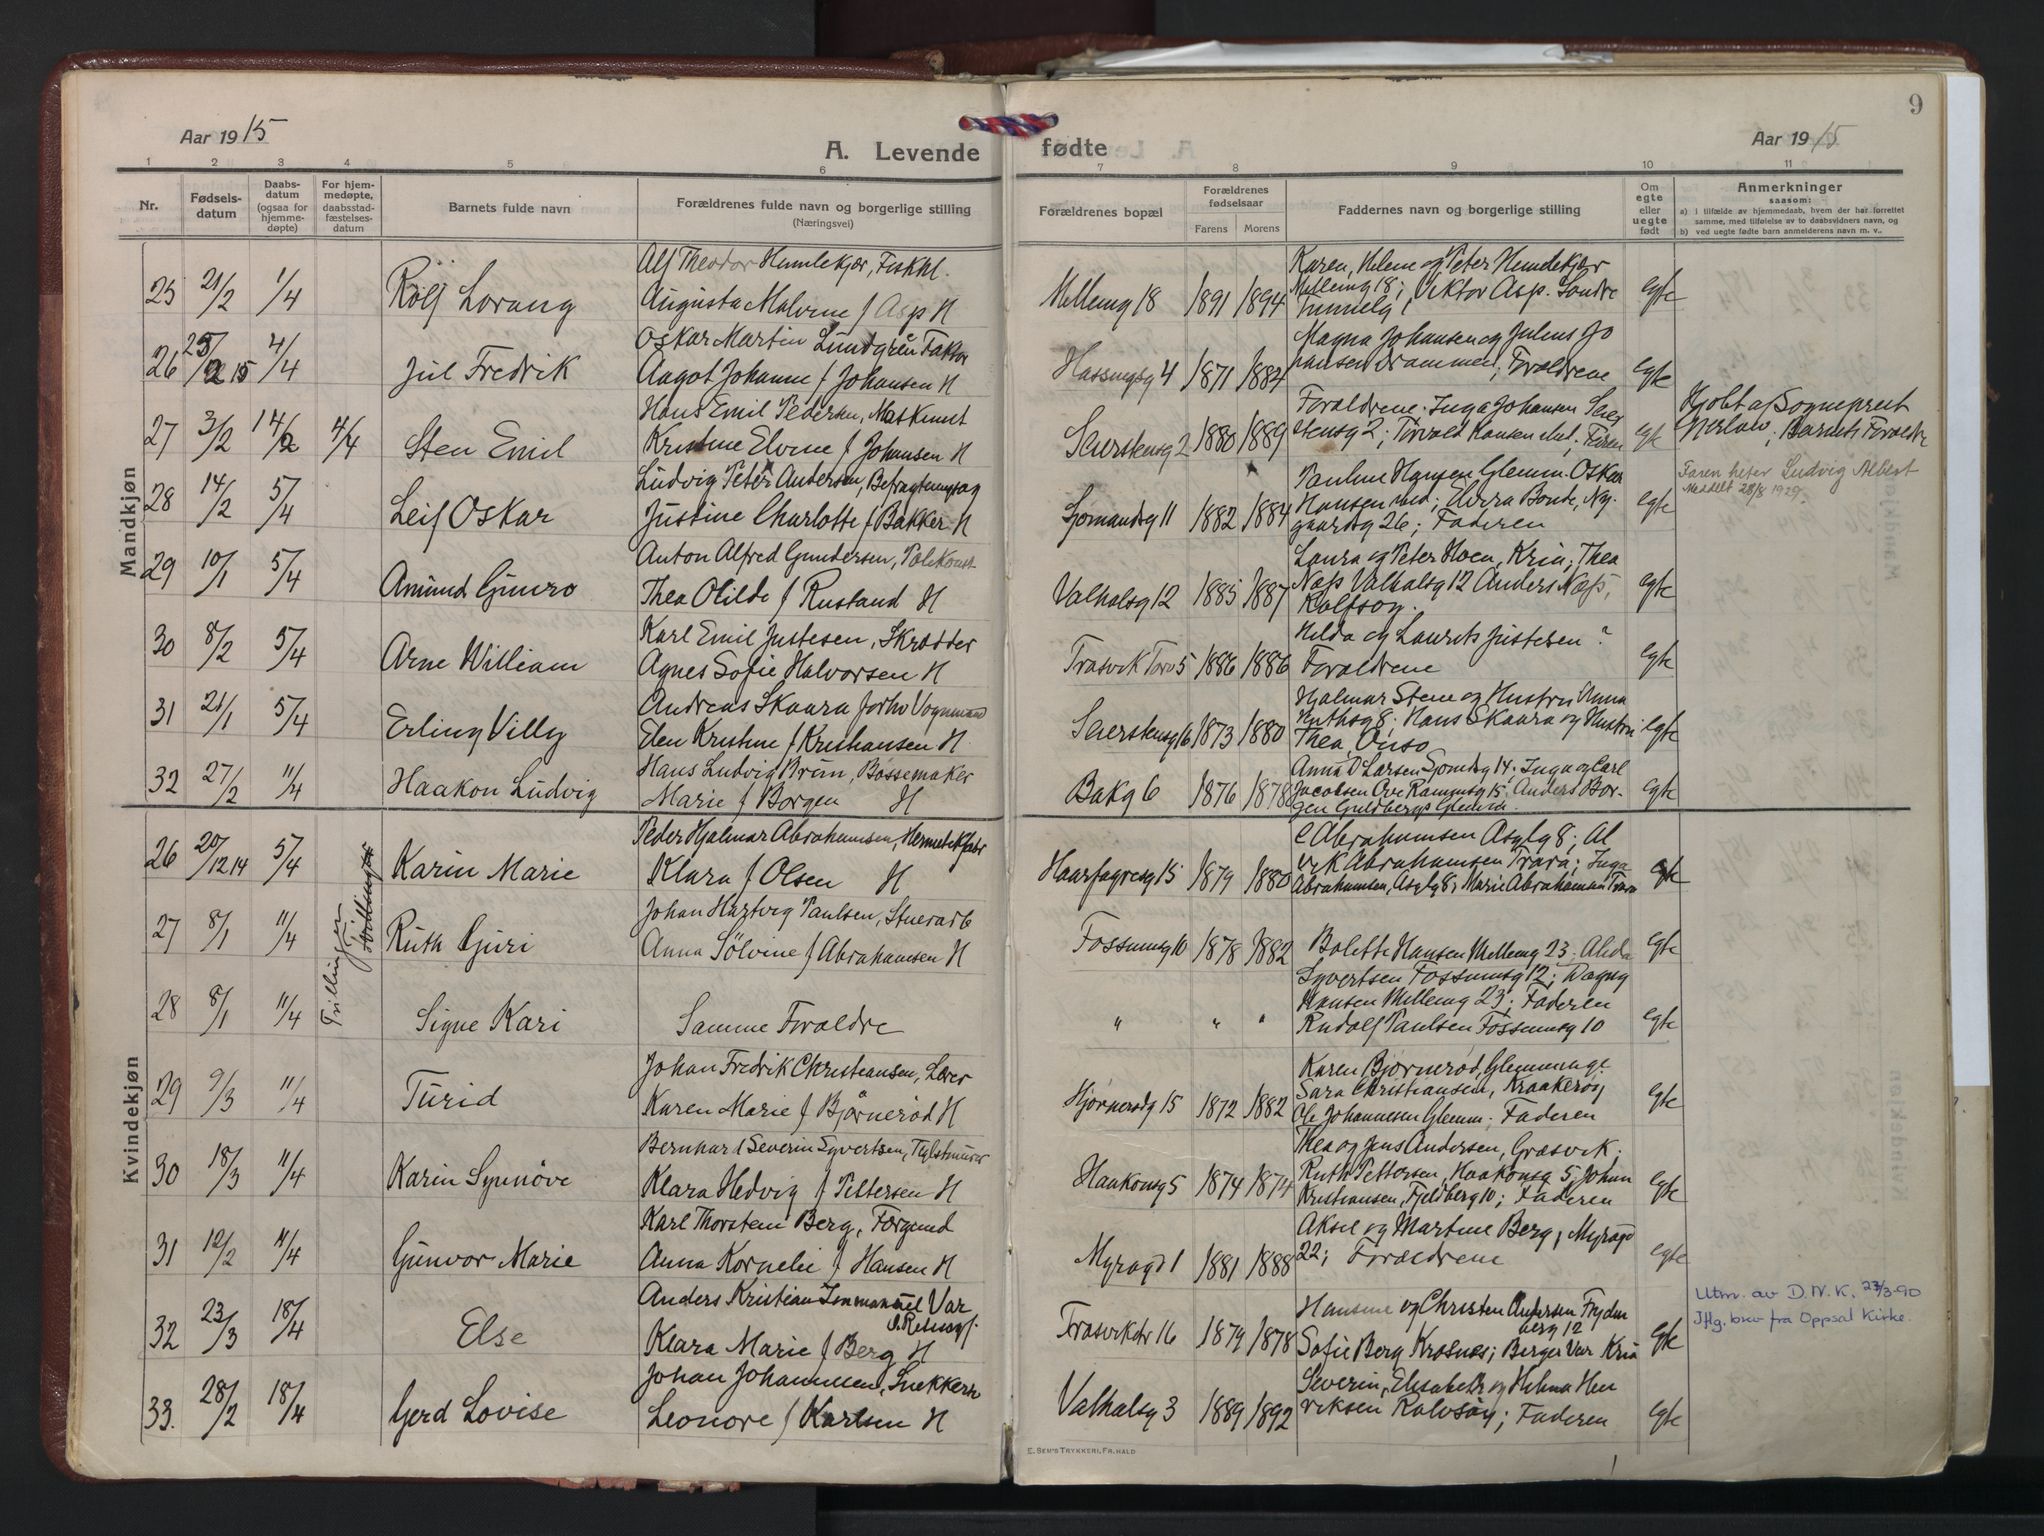 9
Aar 1915
A. Levende
fødte
Aar 1915
1 2 3 4 5 6 7 8 9 10 11
Nr.
Fødsels-
datum
Daabs-
datum
(ogsaa for
hjemme-
døpte)
For hjem-
medøpte,
daabsstad-
fæstelses-
datum
Barnets fulde navn
Forældrenes fulde navn og borgerlige stilling
(Næringsvei)
Forældrenes bopæl
Forældrenes
fødselsaar
Farens Morens
Faddernes navn og borgerlige stilling
Om
egte
eller
uegte
født
Anmerkninger
saasom:
a) i tilfælde av hjemmedaab, hvem der har forrettet
samme, med tilføielse av to daabsvidners navn, og
b) ved uegte fødte barn anmelderens navn m. v..
Mandkjøn
25 21/2 1/4 Rolf Lorang
Alf Theodor Hemlekjær, Fiskhl.
Augusta Malvine f Asp H
Mellemg 18 1891 1894
Karen, Helene og Peter Hemlekjær
Mellemg 18; Viktor Asp. Søndre
egte
26 25/2 15 4/4 Jul Fredrik
Oskar Martin Lundgrén Faktor
Aagot Johanne f Johansen H
4 1871 1884
Magna Johansen og Julius Jo
hansen Drammen; Forældrene
egte
27 3/2 14/2 4/4 Sten Emil
Hans Emil Pedersen, Maskinist
Kristine Elvine f Johansen H
Seierstensg 2 1880 1889
Forældrene. Inga Johansen Seier
stensg 2; Torvald Hansen ibid;
egte
Hjdbt af Sogneprest
Gerlow; Barnets Forældre
28 14/2 5/4 Leif Oskar
Ludvig Peter Andersen, Befragtningsag
Justine Charlotte f Bakker H
Sjomandsg 11 1882 1884
Pauline Hansen Glemm. Oskar
Hansen ibid; Borra Bonde, Ny-
gaardsg 26; Faderen
egte
Faren heter Ludvig Albert
Meddelt 28/8 1929
29 10/1 5/4 Amund Gunro
Anton Alfred Gundersen, Polikonst
Thea Otilde f Rustand H
Valhalsg 12 1885 1887
Laura og Peter Hoen, Kria; Thea
Næs Valhalsg 12 Anders Næs,
Kalfsøy.
egte
30 8/2 5/4 Arne William
Karl Emil Justesen, Skrædder
Agnes Sofie Halvorsen H
Trosvik Torv 5 1886 1886
Hilda og Laurits Justesen?
Forældrene
egte
31 21/1 5/4 Erling Villy
Andreas Skaara Vognmand
Elen Kristine f Kristiansen H
Seierstensg 16 1873 1880
Hjalmar Stene og Hustru Anna
Huthsg 8. Hans Skaara og Hustru
Thea, Onsø
egte
32 27/2 11/4 Haakon Ludvig
Hans Ludvig Brun, Bøssemaker
Marie f Borgen H
Bakg 6 1876 1878
Anna D Larsen Sjomdsg 14; Inga og Carl
Jacobsen Ove Rammsg 15. Anders Bor-
gen Guldbergs Glemm.
egte
Kvindekjøn
26 20/12 14 5/4 Karin Marie
Peder Hjalmar Abrahamsen, Hermetikfabr
Klara f Olsen H
Haarfagresg 15 1879 1880
C Abrahamsen Asylg 8; Al
Abrahamsen Trara; Inga
Abrahamsen, Asylg 8; Marie Abrahamsen Trara
egte
Trillinger
27 8/1 11/4 Ruth Guri
Johan Hartvig Paulsen, Stuerarb
Anna Sølvine f Abrahamsen H
Fossumsg 10 1878 1882
Bolette Hansen Mellemg 23. Alida
Syvertsen Fossumsg 12; Dagny
egte
28 8/1 11/4 Signe Kari
Samme Forældre
" " "
Hansen Mellemg 23; Faderen
Rudolf Paulsen Fossumsg 10
egte
29 9/3 11/4 Turid
Johan Fredrik Christiansen, Lærer
Karen Marie f Bjørnerød H
Hjørnersdg 15 1872 1882
Karen Bjørnerød, Glemmengt.
Sara Christiansen, Kraakerøy
Ole Johannesen Glemm; Faderen
egte
30 18/3 11/4 Karin Synnöve
Bernhard Severin Syvertsen, Fylstmurer
Klara Hedvig f Pettersen H
Haakonsg 5 1874 1874
Thea og Jens Andersen, Græsvik;
Ruth Pettersen, Haakonsg 5, Johan
Kristiansen, Fjeldberg 10; Faderen
egte
31 12/2 11/4 Gunvor Marie
Karl Thorstein Berg, Førgmd
Anna Kornelie f Hansen H
Myragd 1 1881 1888
Aksel og Martine Berg, Myragd
22; Forældrene
egte
32 23/3 18/4 Else
Anders Kristian Immanuel Var
Klara Marie f Berg H
Trosvikstr 16 1879 1878
Hansine og Christen Andersen Fryden
berg 12
Sofie Berg Krosnes; Berger Var Kria
egte
Utm. av D.N.K. 27/3-90
Iflg. brev fra Oppsal Kirke.
33. 28/2 18/4 Gerd Lovise
Johan Johannesen, Snekkersv
Leonore f Karlsen H
Valhalsg 3 1889 1892
Severin, Elisabeth og Helma Hen
riksen Kalvsöy; Faderen
egte
E. SEM'S TRYKKERI, FR.HALD